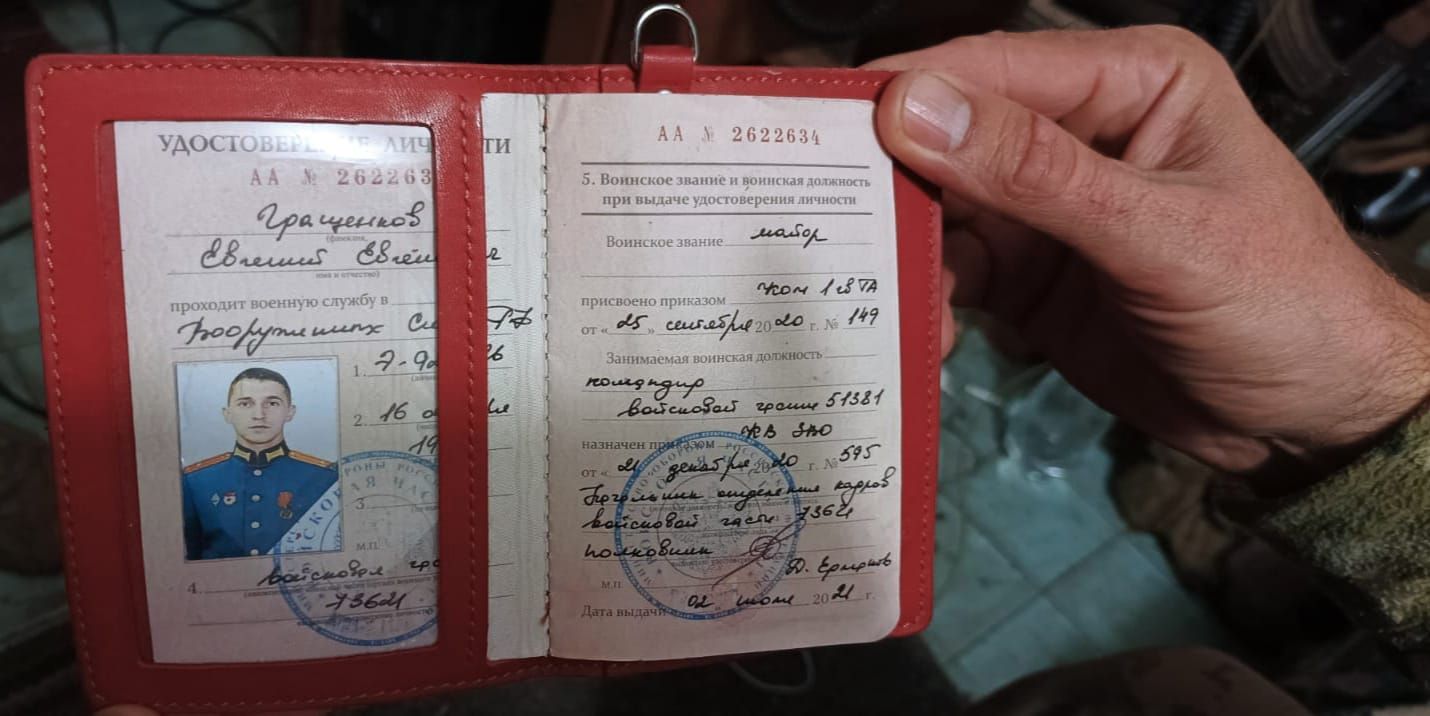 УДОСТОВЕРЕНИЕ ЛИЧНОСТИ
АА № 262263
Гращенков
(фамилия,
Евгений Евгеньевич
имя и отчество)
проходит военную службу в
Вооруженных Силах РФ
1.
2. 16
19
3.
М.П.
4. войсковая
73621
АА № 2622634
5. Воинское звание и воинская должность
при выдаче удостоверения личности
Воинское звание майор
присвоено приказом Ком 1 гв ТА
от « 25 » сентября 20 20 г. № 149
Занимаемая воинская должность
командир
войсковой части 51381
назначен приказом ЗВО
от « 21 декабря 20 20 г. № 595
Начальник отделения кадров
войсковой части 73621
полковник
М.П.
Дата выдачи 02 20 21 г.